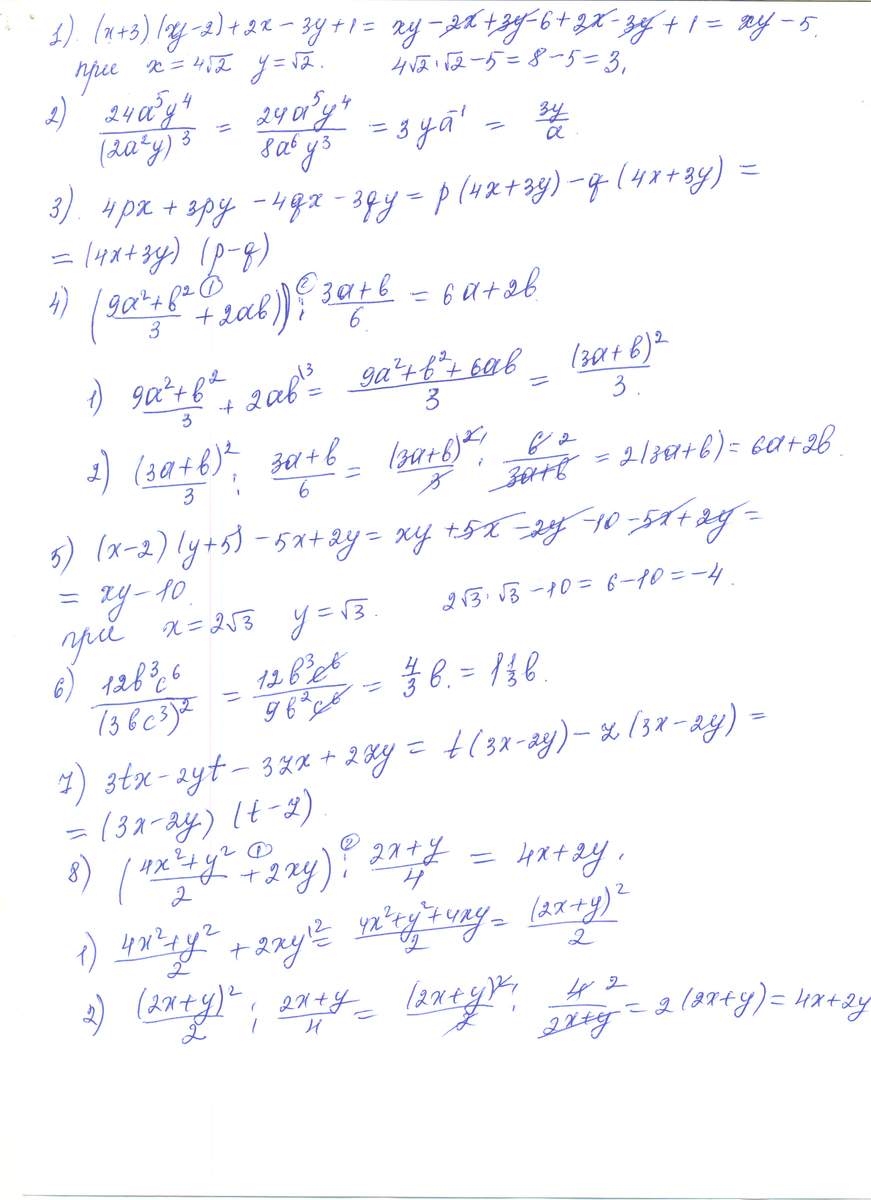 1). (x+3)(xy-2)+2x-3y+1= xy-2x+3y-6+2x-3y+1= xy-5.
при x=4√2 y=√2. 4√2·√2-5=8-5=3,
2) 24a⁵y⁴/(2a²y)³ = 24a⁵y⁴/8a⁶y³ = 3ya⁻¹ = 3y/a
3). 4px+3py-4qx-3qy=p(4x+3y)-q(4x+3y)=
=(4x+3y)(p-q)
4) ((9a²+b²)/3 +① 2ab)) :② (3a+b)/6 = 6a+2b.
1) (9a²+b²)/3 + 2ab\3 = (9a²+b²+6ab)/3 = (3a+b)²/3.
2) (3a+b)²/3 : (3a+b)/6 = (3a+b)²\/3 · 6 2/(3a+b) = 2(3a+b)=6a+2b.
5) (x-2)(y+5)-5x+2y= xy+5x-2y-10-5x+2y=
= xy-10.
при x=2√3 y=√3. 2√3·√3-10=6-10=-4.
6) 12b³c⁶/(3bc³)² = 12b³c⁶/9b²c⁶ = 4/3 b. = 1 1/3 b.
7) 3tx-2yt-3zx+2zy= t(3x-2y)-z(3x-2y)=
=(3x-2y)(t-z).
8) ((4x²+y²)/2 +① 2xy) :② (2x+y)/4 = 4x+2y.
1) (4x²+y²)/2 + 2xy\2 = (4x²+y²+4xy)/2 = (2x+y)²/2
2) (2x+y)²/2 : (2x+y)/4 = (2x+y)²/2 · 4 2/(2x+y) = 2(2x+y)=4x+2y